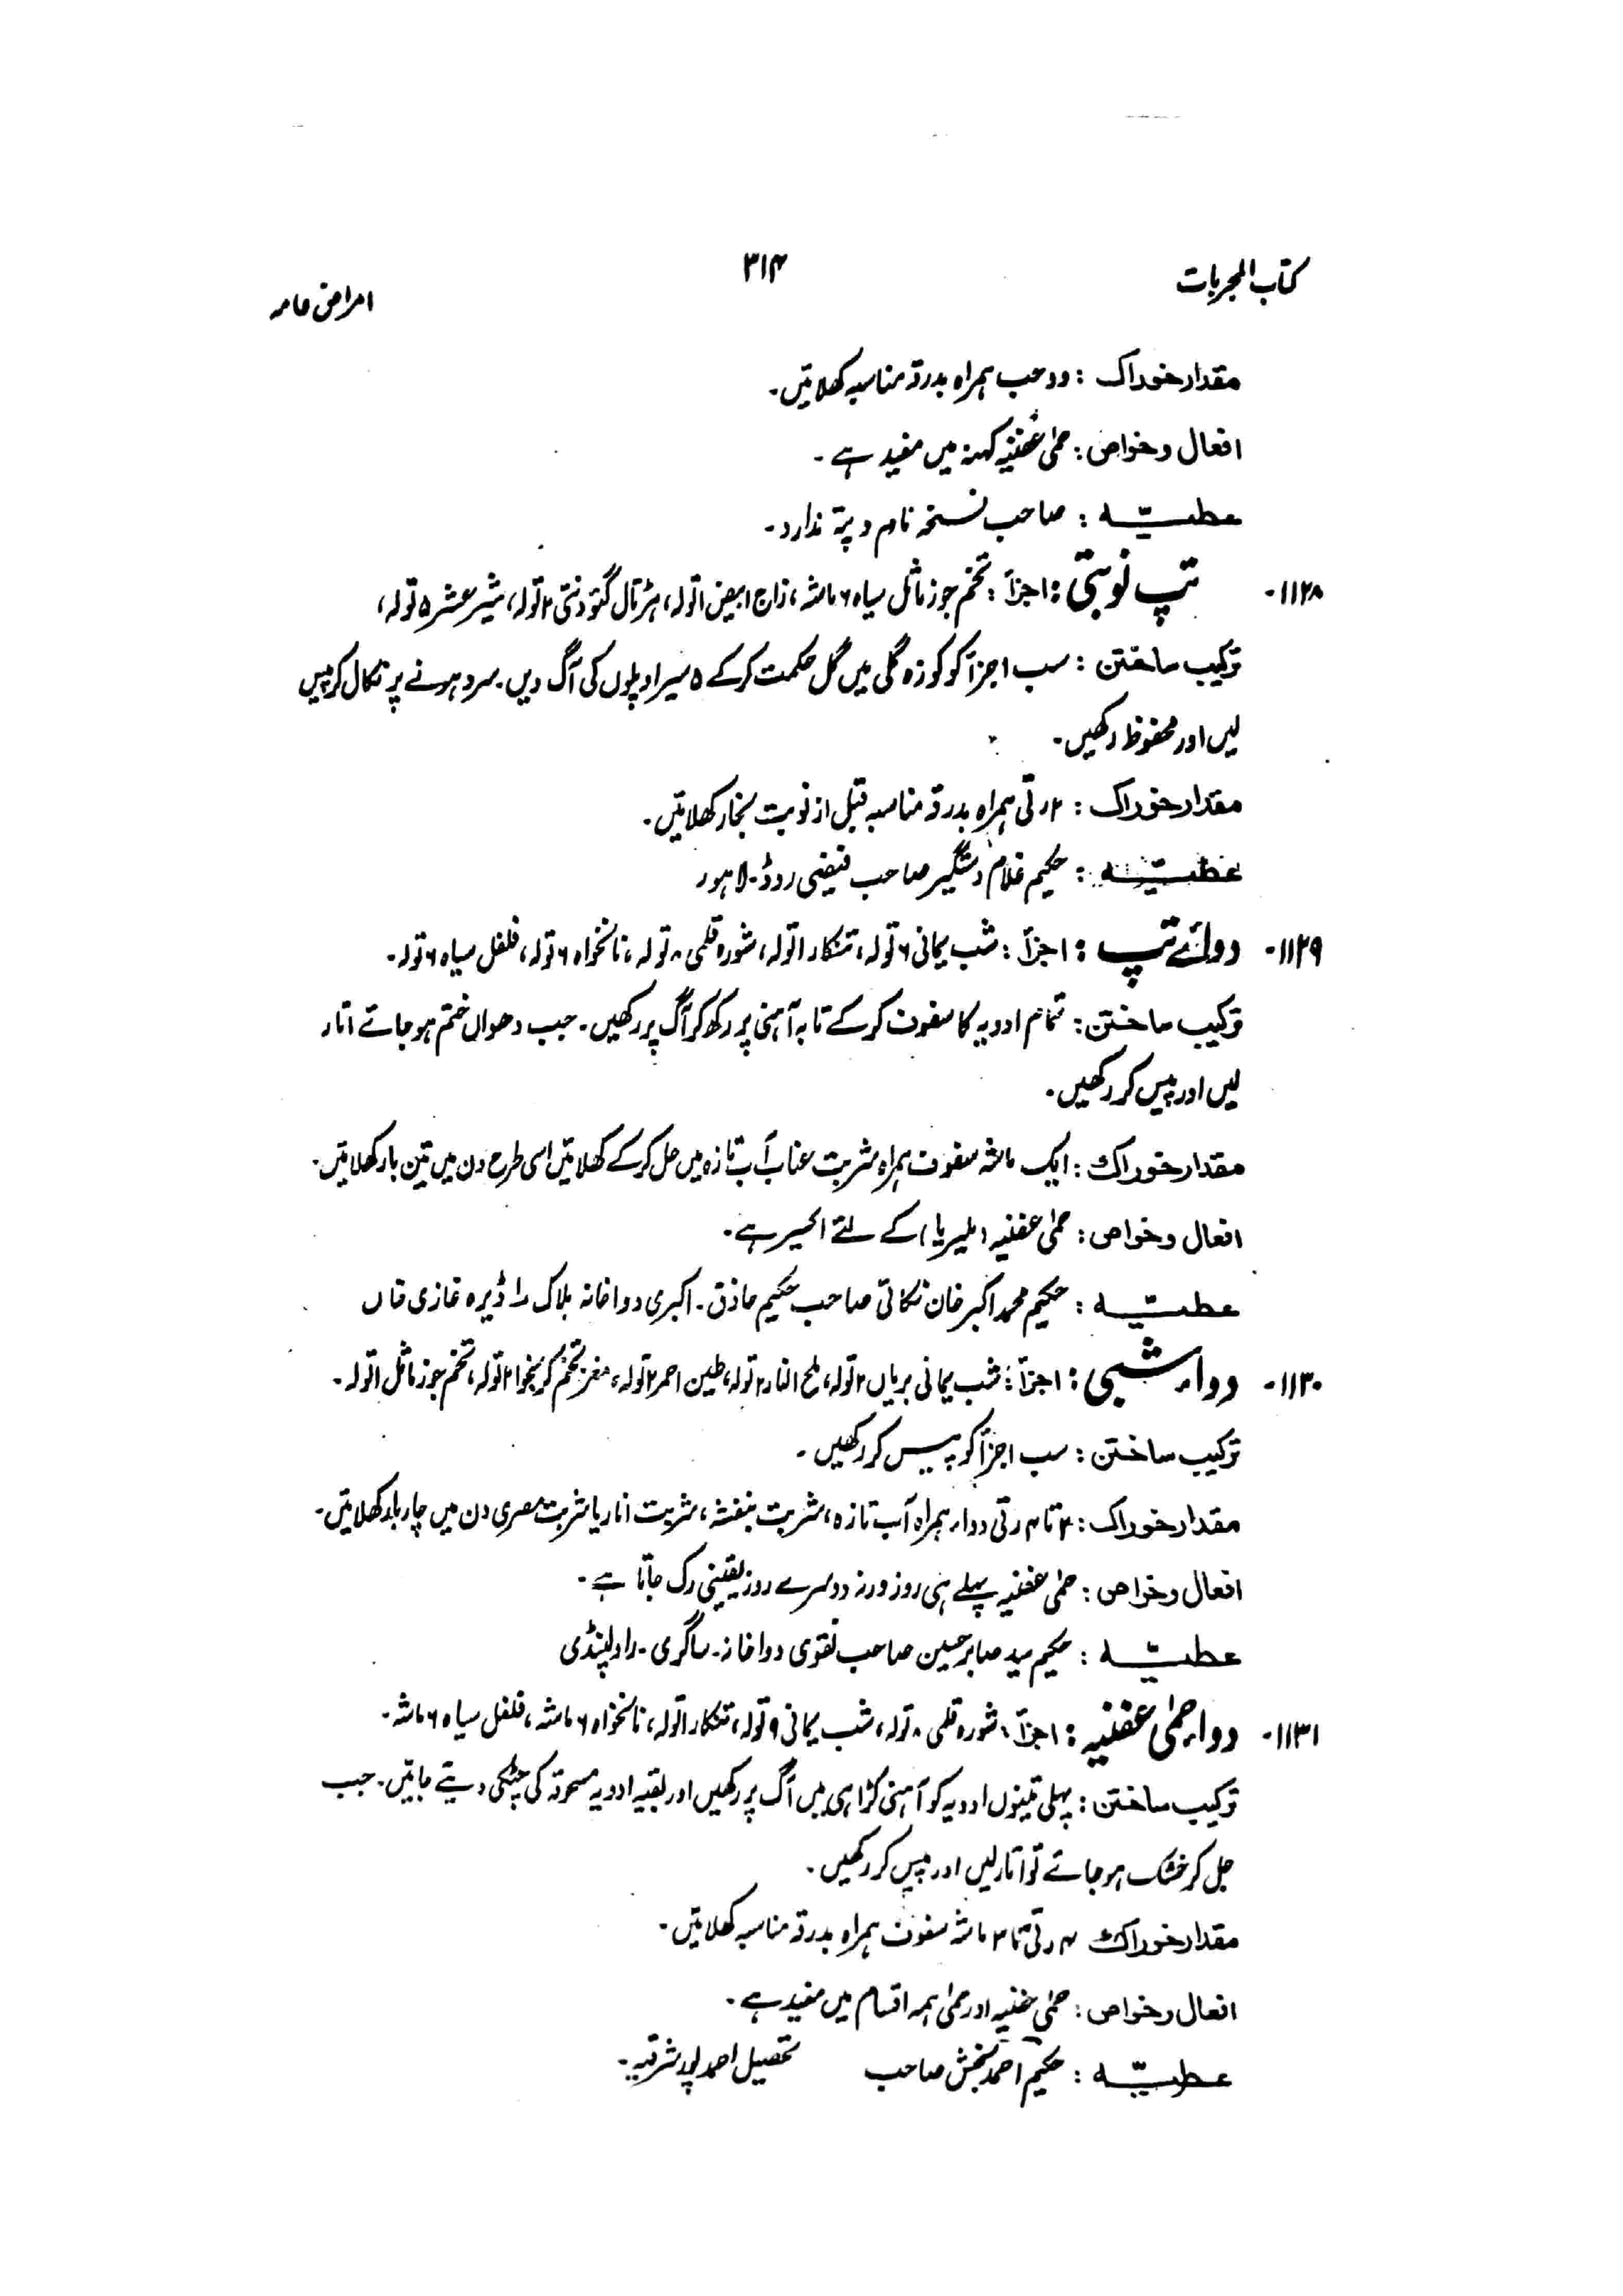 کتاب المجربات
۳۱۴
امراض عامہ
مقدار خوراک : دو حب ہمراہ بدرقہ مناسبہ کھلائیں۔
افعال وخواص : حمیٰ عفنیہ کہنہ میں مفید ہے ۔
عطیّہ : صاحب نسخہ نام و پتہ ندارد۔
۱۱۲۸۔ تپ نوبتی : اجزأ : تخم جوز ماثل سیاہ ۶ ماشہ ، زاج ابیض ۱ تولہ، ہڑتال گئودنتی ۲ تولہ، شیر عشر ۵ تولہ،
ترکیب ساختن : سب اجزأ کو کوزہ گلی میں گل حکمت کرکے ۵ سیر اوپلوں کی آگ دیں۔ سرد ہونے پر نکال کر پیس
لیں اور محفوظ رکھیں۔
مقدار خوراک : ۲ رتی ہمراہ بدرقہ مناسبہ قبل از نوبت بخار کھلائیں۔
عطیّہ : حکیم غلام دستگیر صاحب فیضی روڈ۔ لاہور
۱۱۲۹۔ دوائے تپ : اجزأ : شب یمانی ۶ تولہ، تنکار ۱ تولہ، شورہ قلمی ۸ تولہ، نانخواہ ۶ تولہ، فلفل سیاہ ۶ تولہ۔
ترکیب ساختن : تمام ادویہ کا سفوف کرکے تابہ آہنی پر رکھ کر آگ پر رکھیں۔ جب دھواں ختم ہو جائے اتار
لیں اور پیس کر رکھیں۔
مقدار خوراک : ایک ماشہ سفوف ہمراہ شربت عناب آب تازہ میں حل کرکے کھلائیں اسی طرح دن میں تین بار کھلائیں۔
افعال وخواص : حمیٰ عفنیہ (ملیریا) کے لئے اکسیر ہے۔
عطیّہ : حکیم محمد اکبر خان نکانی صاحب حکیم حاذق۔ اکبری دواخانہ بلاک ڈیرہ غازی خاں
۱۱۳۰۔ دواء شبی : اجزأ : شب یمانی بریاں ۲ تولہ، ملح النار ۲ تولہ، طین احمر ۲ تولہ، مغز تخم کرنجوا ۲ تولہ، تخم جوز ماثل ۱ تولہ۔
ترکیب ساختن : سب اجزأ کو پیس کر رکھیں ۔
مقدار خوراک : ۲ تا ۴ رتی دواء ہمراہ آب تازہ، شربت بنفشہ، شربت انار یا شربت مصری دن میں چار بار کھلائیں۔
افعال وخواص : حمیٰ عفنیہ پہلے ہی روز ورنہ دوسرے روز یقینی رک جاتا ہے۔
عطیّہ : حکیم سید صابر حسین صاحب نقوی دواخانہ۔ ساگری۔ راولپنڈی
۱۱۳۱۔ دواء حمیٰ عفنیہ : اجزأ : شورہ قلمی ۸ تولہ، شب یمانی ۹ تولہ، تنکار ۱ تولہ، نانخواہ ۶ ماشہ، فلفل سیاہ ۶ ماشہ۔
ترکیب ساختن : پہلی تینوں ادویہ کو آہنی کڑاہی میں آگ پر رکھیں اور بقیہ ادویہ مسحوقہ کی چٹکی دیتے جائیں۔ جب
جل کر خشک ہو جائے تو اتار لیں اور پیس کر رکھیں۔
مقدار خوراک ۴ رتی تا ۲ ماشہ سفوف ہمراہ بدرقہ مناسبہ کھلائیں۔
افعال وخواص : حمیٰ عفنیہ اور حمیٰ ہمہ اقسام میں مفید ہے۔
عطیّہ : حکیم احمد بخش صاحب تحصیل احمد پور شرقیہ۔